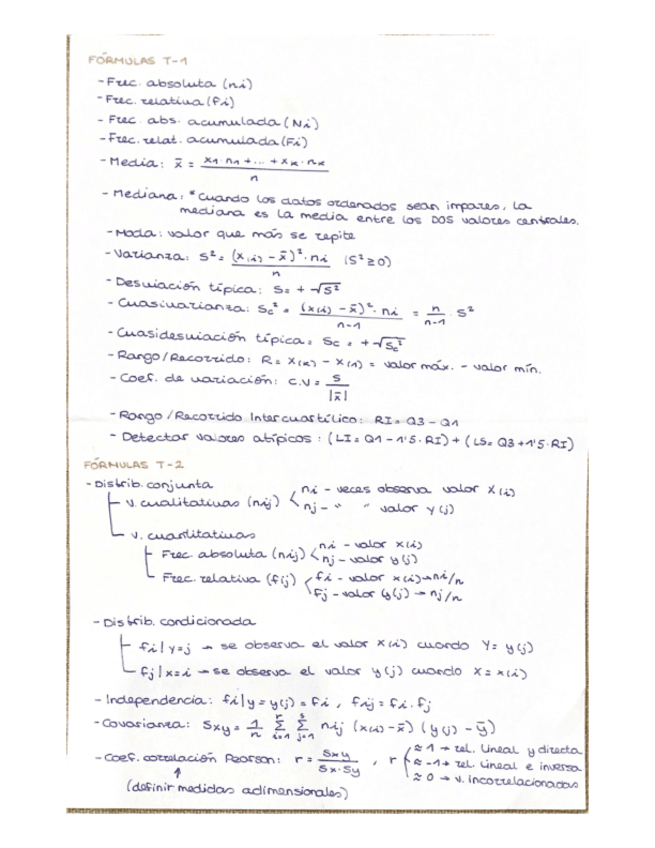 FÓRMULAS T-1
- Frec. absoluta (ni)
- Frec. relativa (fi)
- Frec. abs. acumulada (Ni)
- Frec. relat. acumulada (Fi)
- Media: x̄ = (x1·n1 + ... + xk·nk) / n
- Mediana: * Cuando los datos ordenados sean impares, la
mediana es la media entre los DOS valores centrales.
- Moda: valor que más se repite
- Varianza: S² = (x(i) - x̄)²·ni / n (S² ≥ 0)
- Desviación típica: S = + √S²
- Cuasivarianza: Sc² = (x(i) - x̄)²·ni / n-1 = n / n-1 · S²
- Cuasidesviación típica = Sc = + √Sc²
- Rango/Recorrido: R = x(k) - x(1) = valor máx. - valor mín.
- Coef. de variación: C.V = S / |x̄|
- Rango/Recorrido Intercuartílico: RI = Q3 - Q1
- Detectar valores atípicos: (LI = Q1 - 1'5·RI) + (LS = Q3 + 1'5·RI)
FÓRMULAS T-2
- Distrib. conjunta
v. cualitativas (nij) < ni - veces observa valor x(i)
nj - " " valor y(j)
v. cuantitativas
Frec. absoluta (nij) < ni - valor x(i)
nj - valor y(j)
Frec. relativa (fij) < fi - valor x(i) → ni/n
fj - valor y(j) → nj/n
- Distrib. condicionada
fi|y=j → se observa el valor x(i) cuando Y = y(j)
fj|x=i → se observa el valor y(j) cuando X = x(i)
- Independencia: fi|y = y(j) = fi, fij = fi·fj
- Covarianza: Sxy = 1/n Σ(i=1, r) Σ(j=1, s) nij (x(i) - x̄) (y(j) - ȳ)
- Coef. correlación Pearson: r = Sxy / Sx·Sy, r { ≈ 1 → rel. lineal y directa
≈ -1 → rel. lineal e inversa
≈ 0 → v. incorrelacionadas
↑
(definir medidas adimensionales)